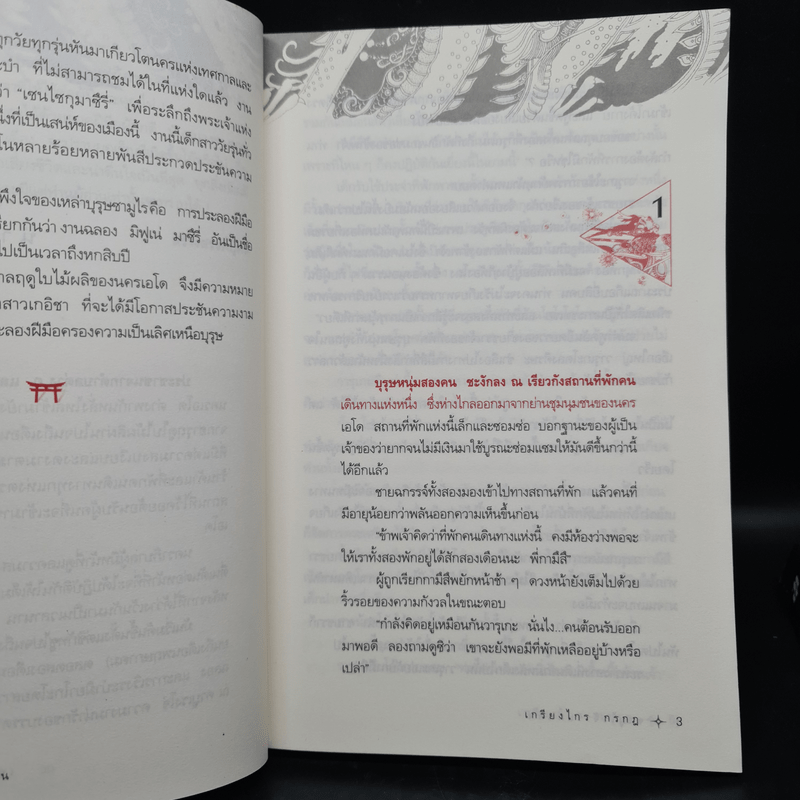 ทุกวัยทุกรุ่นหันมาเกียวโตนครแห่งเทศกาลและ
ที่ไม่สามารถชมได้ในที่แห่งใดแล้ว งาน
"เซนไซกุมาซึรี่" เพื่อระลึกถึงพระเจ้าแห่ง
ที่เป็นเสน่ห์ของเมืองนี้ งานนี้เด็กสาววัยรุ่นทั่ว
ในหลายร้อยหลายพันสีประกวดประชันความ
พึงใจของเหล่าบุรุษซามูไรคือ การประลองฝีมือ
เรียกกันว่า งานฉลอง มิฟูเน่ มาซึรี่ อันเป็นชื่อ
ไปเป็นเวลาถึงหกสิบปี
ฤดูใบไม้ผลิของนครเอโด จึงมีความหมาย
สาวเกอิชา ที่จะได้มีโอกาสประชันความงาม
ประลองฝีมือครองความเป็นเลิศเหนือบุรุษ
1
บุรุษหนุ่มสองคน ชะงักลง ณ เรียวกังสถานที่พักคน
เดินทางแห่งหนึ่ง ซึ่งห่างไกลออกมาจากย่านชุมนุมชนของนคร
เอโด สถานที่พักแห่งนี้เล็กและซอมซ่อ บอกฐานะของผู้เป็น
เจ้าของว่ายากจนไม่มีเงินมาใช้บูรณะซ่อมแซมให้มันดีขึ้นกว่านี้
ได้อีกแล้ว
ชายฉกรรจ์ทั้งสองมองเข้าไปทางสถานที่พัก แล้วคนที่
มีอายุน้อยกว่าพลันออกความเห็นขึ้นก่อน
"ข้าพเจ้าคิดว่าที่พักคนเดินทางแห่งนี้ คงมีห้องว่างพอจะ
ให้เราทั้งสองพักอยู่ได้สักสองเดือนนะ พี่กามีสึ"
ผู้ถูกเรียกกามีสึพยักหน้าช้า ๆ ดวงหน้ายังเต็มไปด้วย
ริ้วรอยของความกังวลในขณะตอบ
"กำลังคิดอยู่เหมือนกันวารุเกะ นั่นไง...คนต้อนรับออก
มาพอดี ลองถามดูซิว่า เขาจะยังพอมีที่พักเหลืออยู่บ้างหรือ
เปล่า"
เกรียงไกร กรกฎ 3